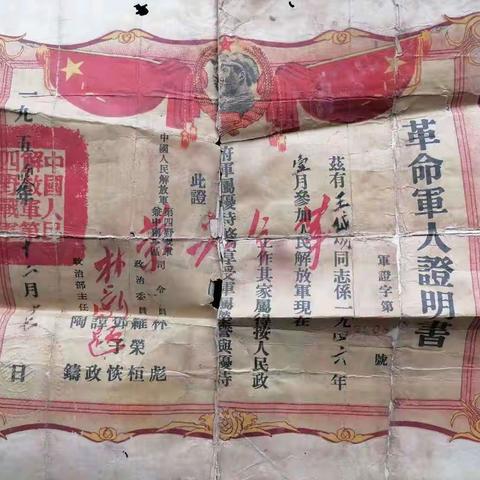 革命軍人證明書
軍證字第 號
茲有王岱同志係一九四六年
壹月參加人民解放軍現在
工作其家屬得按人民政
府軍屬優待條例享受軍屬榮譽與優待
此證
中國人民解放軍第四野戰軍兼中南軍區司令員林彪
政治委員羅榮桓
鄧子恢
政治部主任譚政
陶鑄
一九五年十二月日
中國人民
解放軍第
四野戰